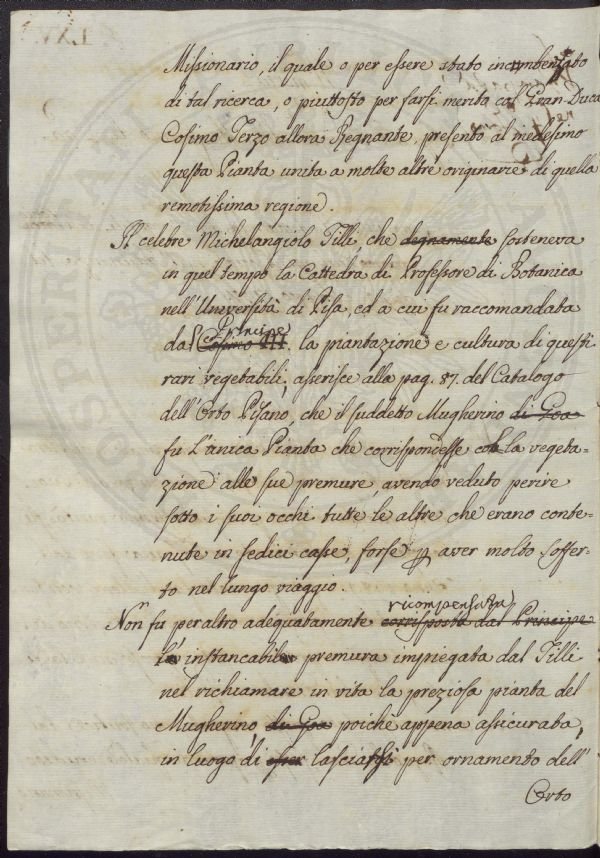 LXV.
Missionario, il quale o per essere stato incombenzato
di tal ricerca, o piuttosto per farsi merito col Gran Duca
Cosimo Terzo allora Regnante, presentò al medesimo
questa Pianta unita a molte altre originarie di quella
remotissima regione.
Il celebre Michelangiolo Tilli, che degnamente sosteneva
in quel tempo la Cattedra di Professore di Botanica
nell'Università di Pisa, ed a cui fu raccomandata
Principe
dal Cosimo III. la piantazione e cultura di questi
rari vegetabili, asserisce alla pag. 87. del Catalogo
dell'Orto Pisano, che il suddetto Mugherino di Goa
fu l'unica Pianta che corrispondesse colla vegeta=
zione alle sue premure, avendo veduto perire
sotto i suoi occhi tutte le altre che erano conte=
nute in sedici casse, forse p aver molto soffer=
to nel lungo viaggio.
ricompensata
Non fu per altro adeguatamente corrisposta dal Principe
l'instancabile premura impiegata dal Tilli
nel richiamare in vita la preziosa pianta del
Mugherino di Goa poichè appena assicurata,
in luogo di esser lasciassi per ornamento dell'
Orto